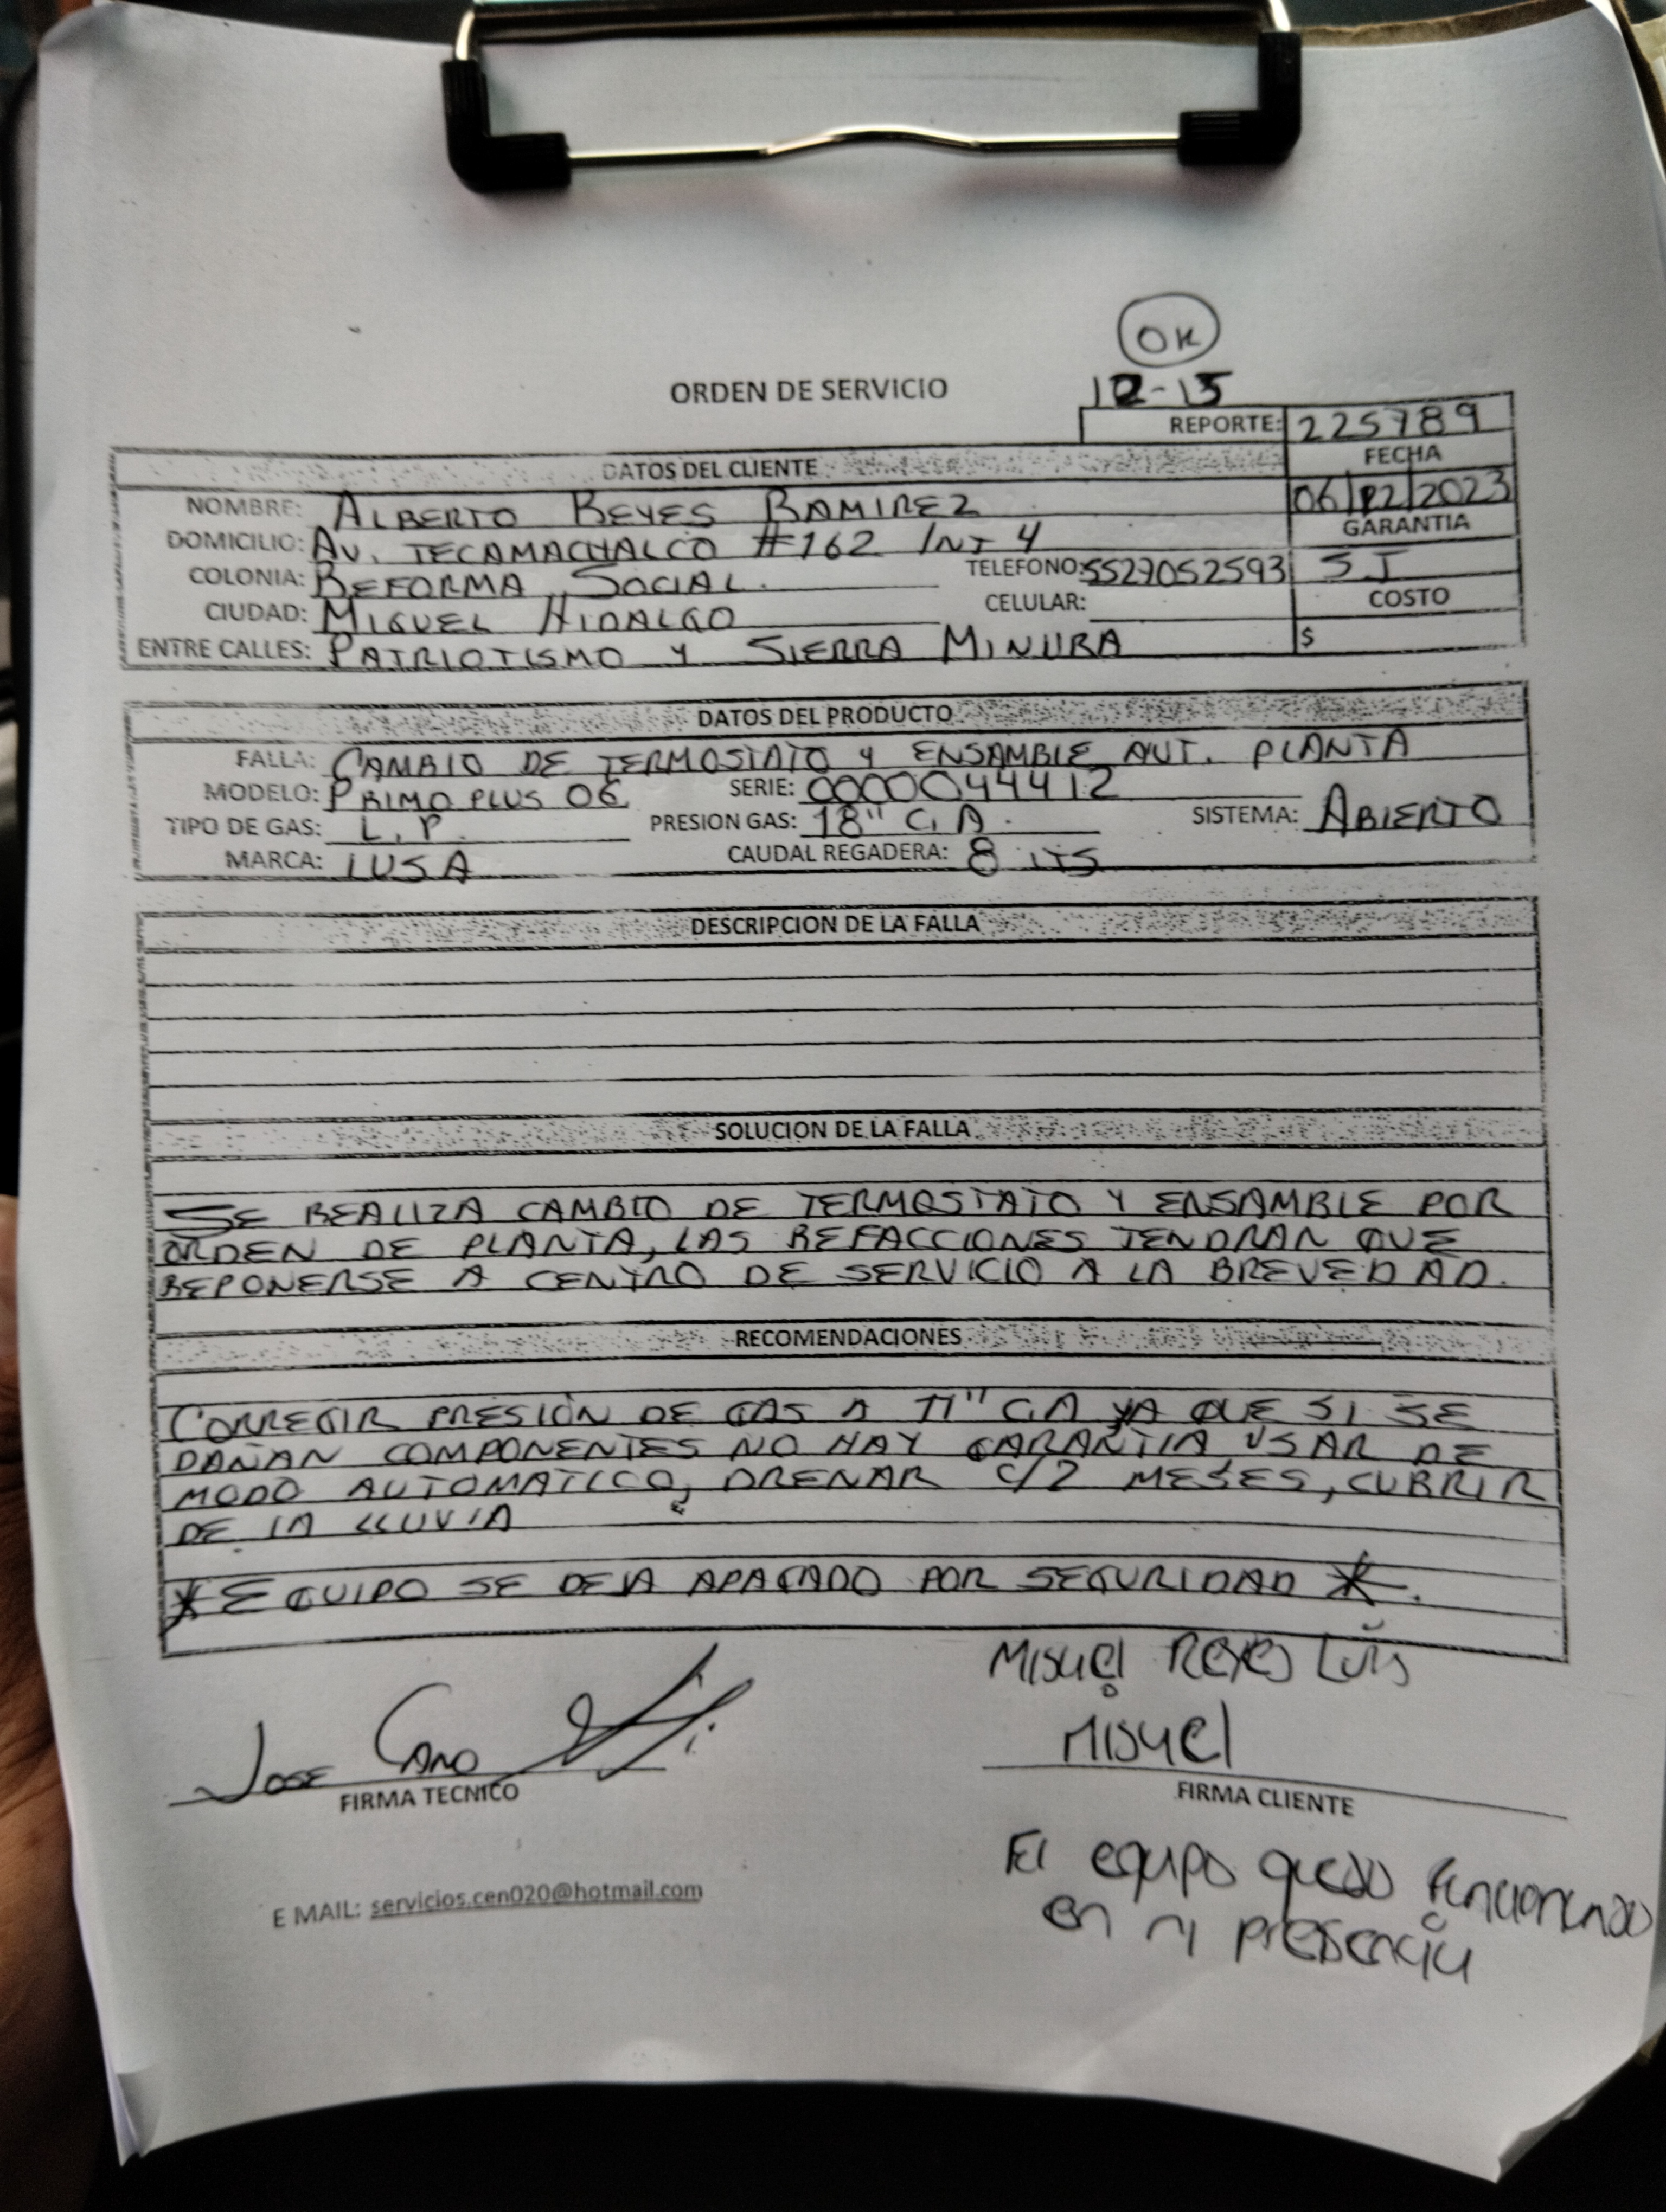 OK
ORDEN DE SERVICIO
12-15
REPORTE: 225789
DATOS DEL CLIENTE
FECHA
NOMBRE: ALBERTO REYES RAMIREZ
06/12/2023
DOMICILIO: AV. TECAMACHALCO #162 INT 4
GARANTIA
COLONIA: REFORMA SOCIAL.
TELEFONO: 5527052593
SI
CIUDAD: MIGUEL HIDALGO
CELULAR:
COSTO
ENTRE CALLES: PATRIOTISMO Y SIERRA MINURA
$
DATOS DEL PRODUCTO
FALLA: CAMBIO DE TERMOSTATO Y ENSAMBLE AUT. PLANTA
MODELO: PRIMO PLUS 06 SERIE: 0000044412
TIPO DE GAS: L.P. PRESION GAS: 18" C.A. SISTEMA: ABIERTO
MARCA: IUSA CAUDAL REGADERA: 8 LTS
DESCRIPCION DE LA FALLA
SOLUCION DE LA FALLA
SE REALIZA CAMBIO DE TERMOSTATO Y ENSAMBLE POR
ORDEN DE PLANTA, LAS REFACCIONES TENDRAN QUE
REPONERSE A CENTRO DE SERVICIO A LA BREVEDAD.
RECOMENDACIONES
CORREGIR PRESION DE GAS A 11" CA YA QUE SI SE
DAÑAN COMPONENTES NO HAY GARANTIA USAR DE
MODO AUTOMATICO, DRENAR C/2 MESES, CUBRIR
DE LA LLUVIA
* EQUIPO SE DEJA APAGADO POR SEGURIDAD *.
MIGUEL REYES LUIS
JOSE CANO
MIGUEl
FIRMA TECNICO
FIRMA CLIENTE
El equipo quedo funcionando
en mi presencia
E MAIL: servicios.cen020@hotmail.com